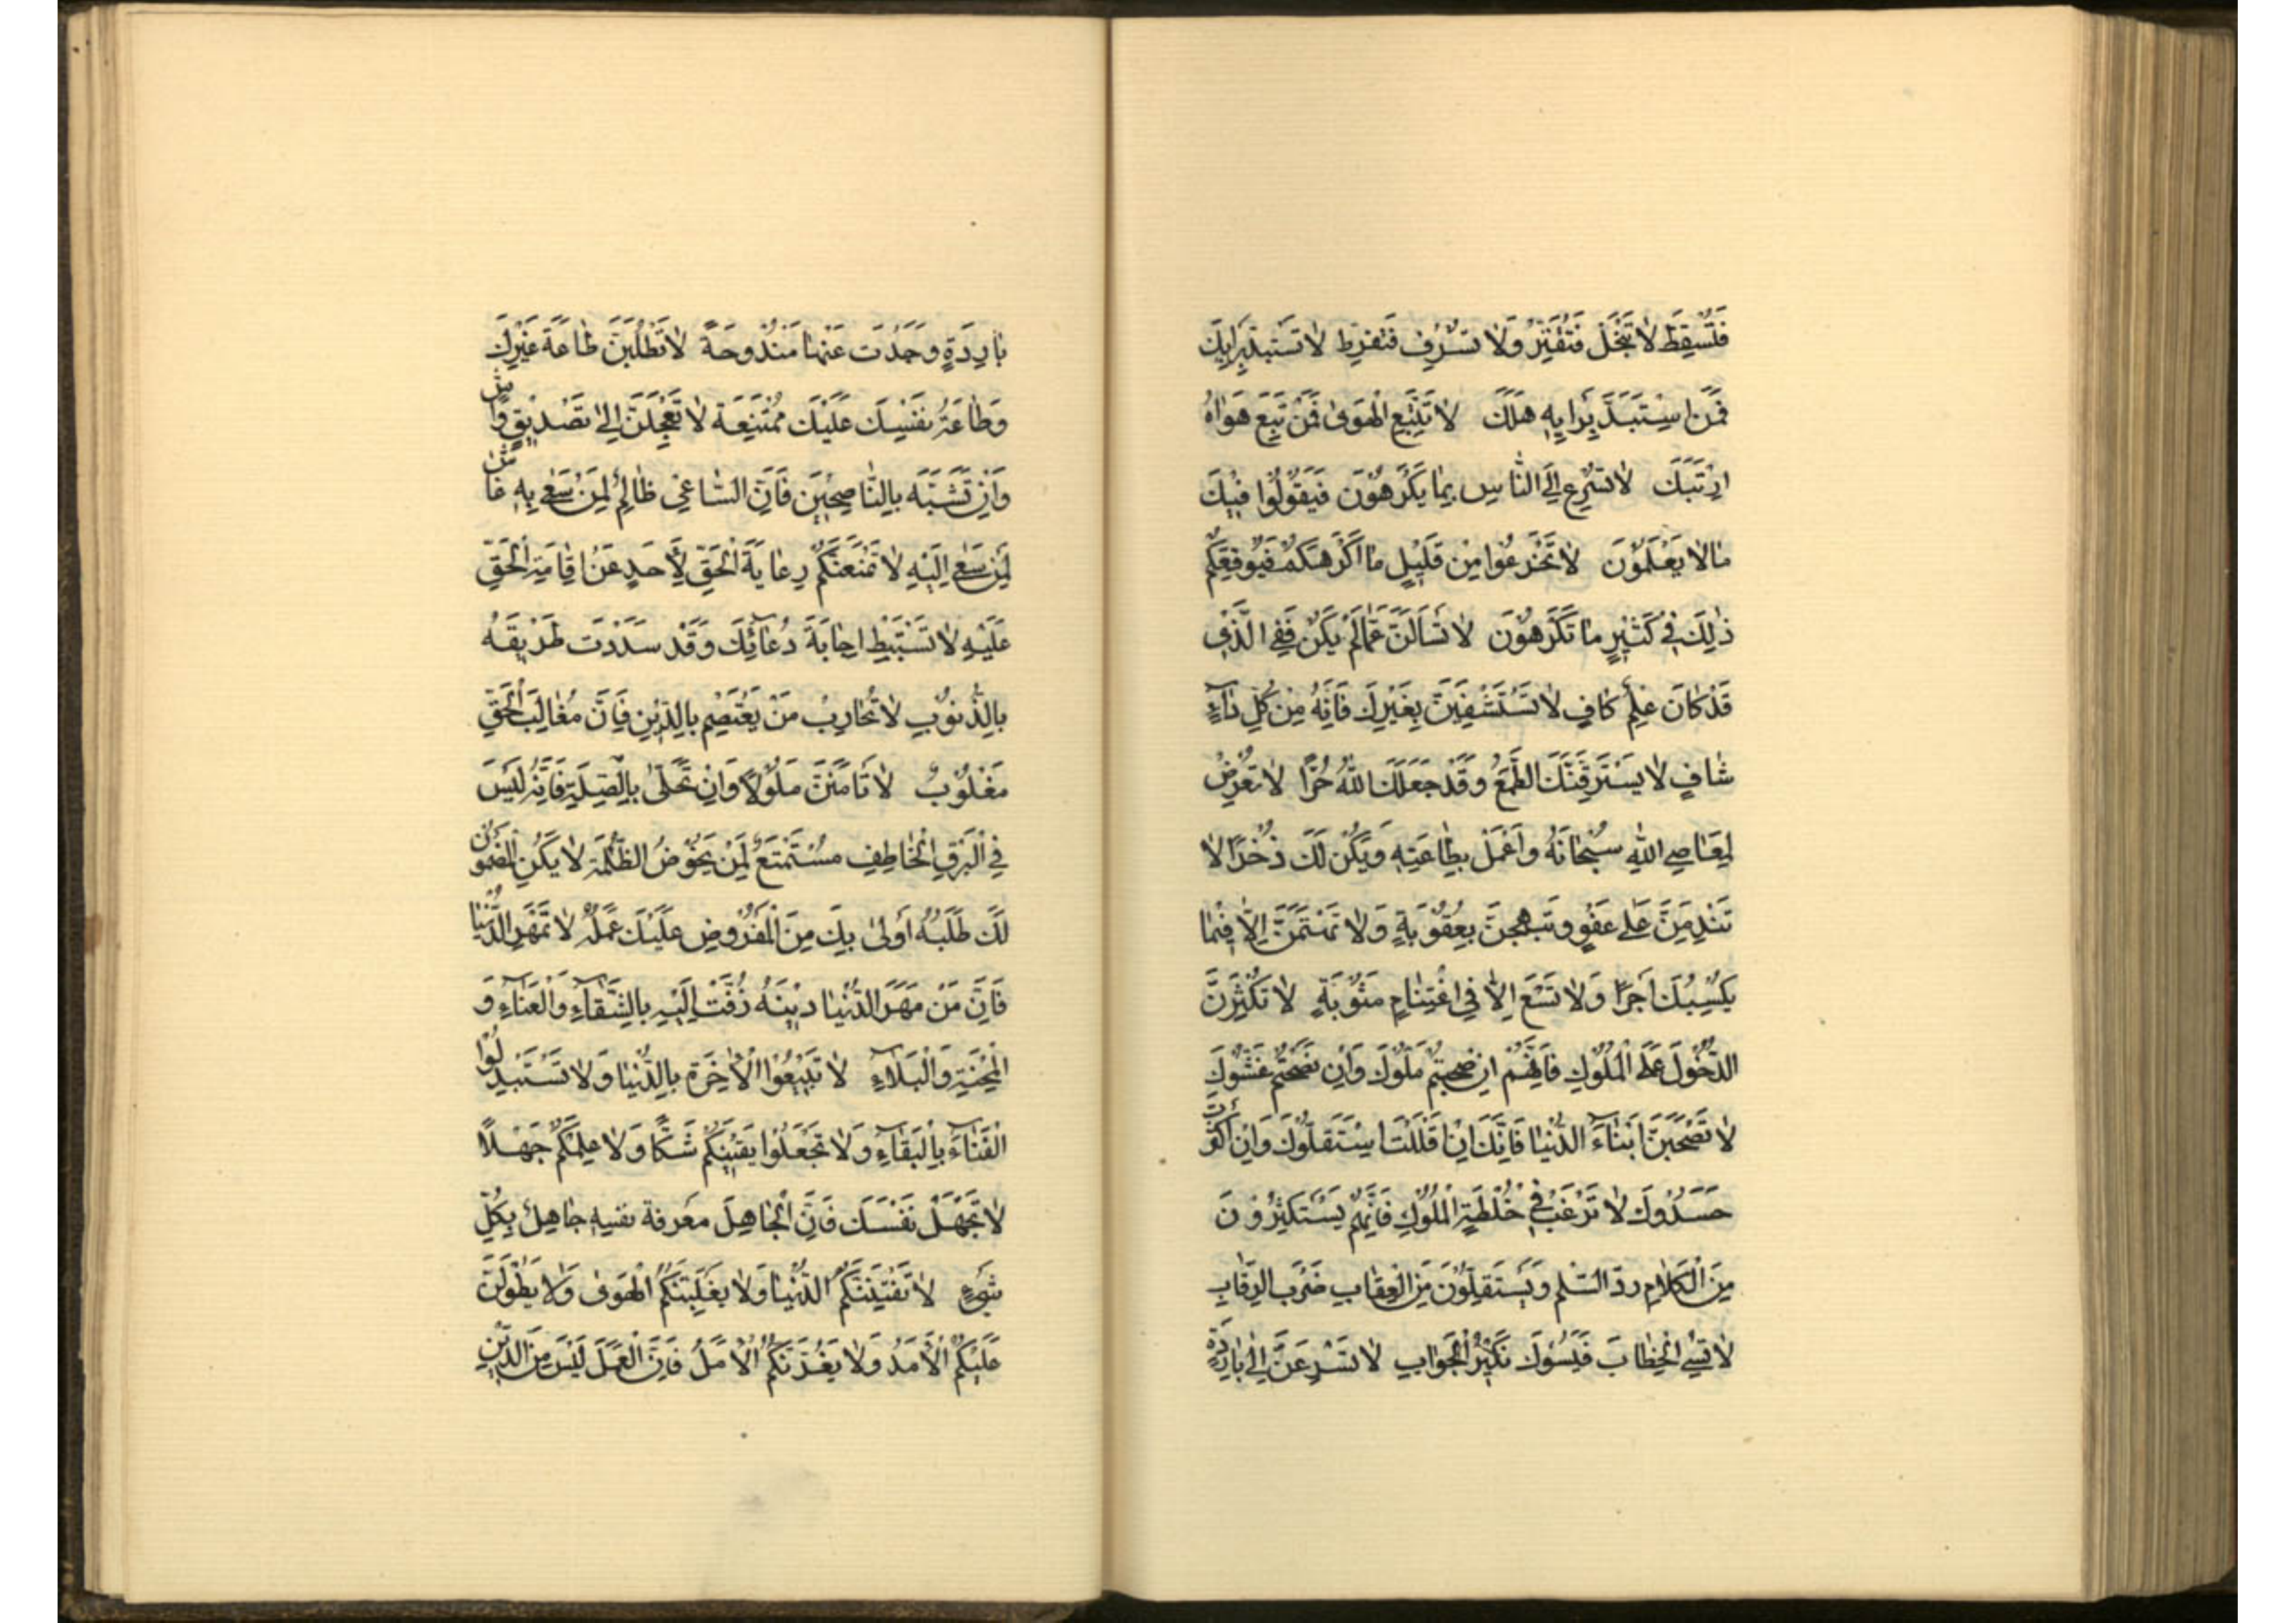 فَتَسْقُطَ لَا تَبْخَلْ فَتُقَتِّرْ وَلَا تُسْرِف فَتُفْرِط لَا تَسْتَبِدَّ بِرَايِكَ
فَمَنِ اسْتَبَدَّ بِرَايِهِ هَلَكَ لَا تَتَّبِعِ الْهَوىٰ فَمَنْ تَبِعَ هَوَاهُ
ارْتَبَكَ لَا تُسْرِع اِلَى النَّاسِ بِمَا يَكْرَهُوْنَ فَيَقُوْلُوْا فِيْكَ
مَا لَا يَعْلَمُوْنَ لَا تَجْزَعُوْا مِنْ قَلِيْلِ مَا اَكْرَهَكُمْ فَيُوْقِعَكُمْ
ذٰلِكَ فِي كَثِيْرٍ مَا تَكْرَهُوْنَ لَا تَسْاَلَنَّ عَمَّا لَمْ يَكُنْ فَفِي الَّذِي
قَدْ كَانَ عِلْمٌ كَافٍ لَا تَسْتَشْفِيَنَّ بِغَيْرِكَ فَاِنَّهُ مِنْ كُلِّ دَآءٍ
شَافٍ لَا يَسْتَرِقَّنَّكَ الطَّمَعُ وَقَدْ جَعَلَكَ اللّٰهُ حُرًّا لَا تَعَرَّضْ
لِمَعَاصِي اللّٰهِ سُبْحَانَهُ وَاعْمَلْ بِطَاعَتِهِ وَيَكُنْ لَكَ ذُخْرًا لَا
تَنْدَمَنَّ عَلىٰ عَفْوٍ وَتَبْهَجَنَّ بِعُقُوْبَةٍ وَلَا تَهْتَمَّنَّ اِلَّا فِيْمَا
يَكْسِبُكَ اَجْرًا وَلَا تَسْعَ اِلَّا فِي اغْتِنَامِ مَثُوْبَةٍ لَا تُكْثِرَنَّ
الدُّخُوْلَ عَلَى الْمُلُوْكِ فَاِنَّهُمْ اِنْ صَحِبْتَهُمْ مَلُّوْكَ وَاِنْ نَصَحْتَهُمْ غَشُّوْكَ
لَا تَصْحَبَنَّ اَبْنَآءَ الدُّنْيَا فَاِنَّكَ اِنْ اَقْلَلْتَ اسْتَقَلُّوْكَ وَاِنْ اَكْثَرْتَ
حَسَدُوْكَ لَا تَرْغَبْ فِيْ خُلْطَةِ الْمُلُوْكِ فَاِنَّهُمْ يَسْتَكْثِرُوْنَ
مِنَ الْكَلَامِ رَدَّ السَّلَمِ وَيَسْتَقِلُّوْنَ مِنَ الْعِقَابِ ضَرْبَ الرِّقَابِ
لَا تُسِيءِ الْخِطَابَ فَيَسُوْكَ نَكِيْرُ الْجَوَابِ لَا تُسْرِعَنَّ اِلىٰ بَادِرَةٍ
بَادِرَةٍ وَجَدْتَ عَنْهَا مَنْدُوْحَةً لَا تَطْلُبَنَّ طَاعَةَ غَيْرِكَ
وَطَاعَةُ نَفْسِكَ عَلَيْكَ مُمْتَنِعَة لَا تَعْجَلَنَّ اِلىٰ تَصْدِيْقِ وَاشٍ
وَاِنْ تَشَبَّهَ بِالنَّاصِحِيْنَ فَاِنَّ السَّاعِي ظَالِمٌ لِمَنْ سَعٰى بِهِ غَاشٌّ
لِمَنْ سَعٰى اِلَيْهِ لَا تَمْنَعَنَّكُمْ رِعَايَةُ الْحَقِّ لِاَحَدٍ عَنْ اِقَامَةِ الْحَقِّ
عَلَيْهِ لَا تَسْتَبْطِ اِجَابَةَ دُعَآئِكَ وَقَدْ سَدَدْتَ طَرِيْقَهُ
بِالذُّنُوْبِ لَا تُحَارِبْ مَنْ يَعْتَصِمُ بِالدِّيْنِ فَاِنَّ مُغَالِبَ الْحَقِّ
مَغْلُوْبٌ لَا تَامَنَنَّ مَلُوْلًا وَاِنْ تَحَلّٰى بِالصِّلَةِ فَاِنَّهُ لَيْسَ
فِي الْبَرْقِ الْخَاطِفِ مُسْتَمْتَعٌ لِمَنْ يَخُوْضُ الظُّلْمَةَ لَا يَكُنِ الْمَضْمُوْنُ
لَكَ طَلَبُهُ اَوْلىٰ بِكَ مِنَ الْمَفْرُوْضِ عَلَيْكَ عَمَلُهُ لَا تَمْهَرِ الدُّنْيَا
فَاِنَّ مَنْ مَهَرَ الدُّنْيَا دِيْنَهُ زُفَّتْ اِلَيْهِ بِالشَّقَآءِ وَالْعَنَآءِ وَ
الْمِحْنَةِ وَالْبَلَآءِ لَا تَبِيْعُوْا الْاٰخِرَةَ بِالدُّنْيَا وَلَا تَسْتَبْدِلُوْا
الْفَنَآءَ بِالْبَقَآءِ وَلَا تَجْعَلُوْا يَقِيْنَكُمْ شَكًّا وَلَا عِلْمَكُمْ جَهْلًا
لَا تَجْهَلْ نَفْسَكَ فَاِنَّ الْجَاهِلَ مَعْرِفَة نَفْسِهِ جَاهِلٌ بِكُلِّ
شَيْءٍ لَا تَفْتِنَنَّكُمُ الدُّنْيَا وَلَا يَغْلِبَنَّكُمُ الْهَوىٰ وَلَا يَطُوْلَنَّ
عَلَيْكُمُ الْاَمَدُ وَلَا يَغُرَّنَّكُمُ الْاَمَلُ فَاِنَّ الْعَمَلَ لَيْسَ مِنَ الدِّيْنِ